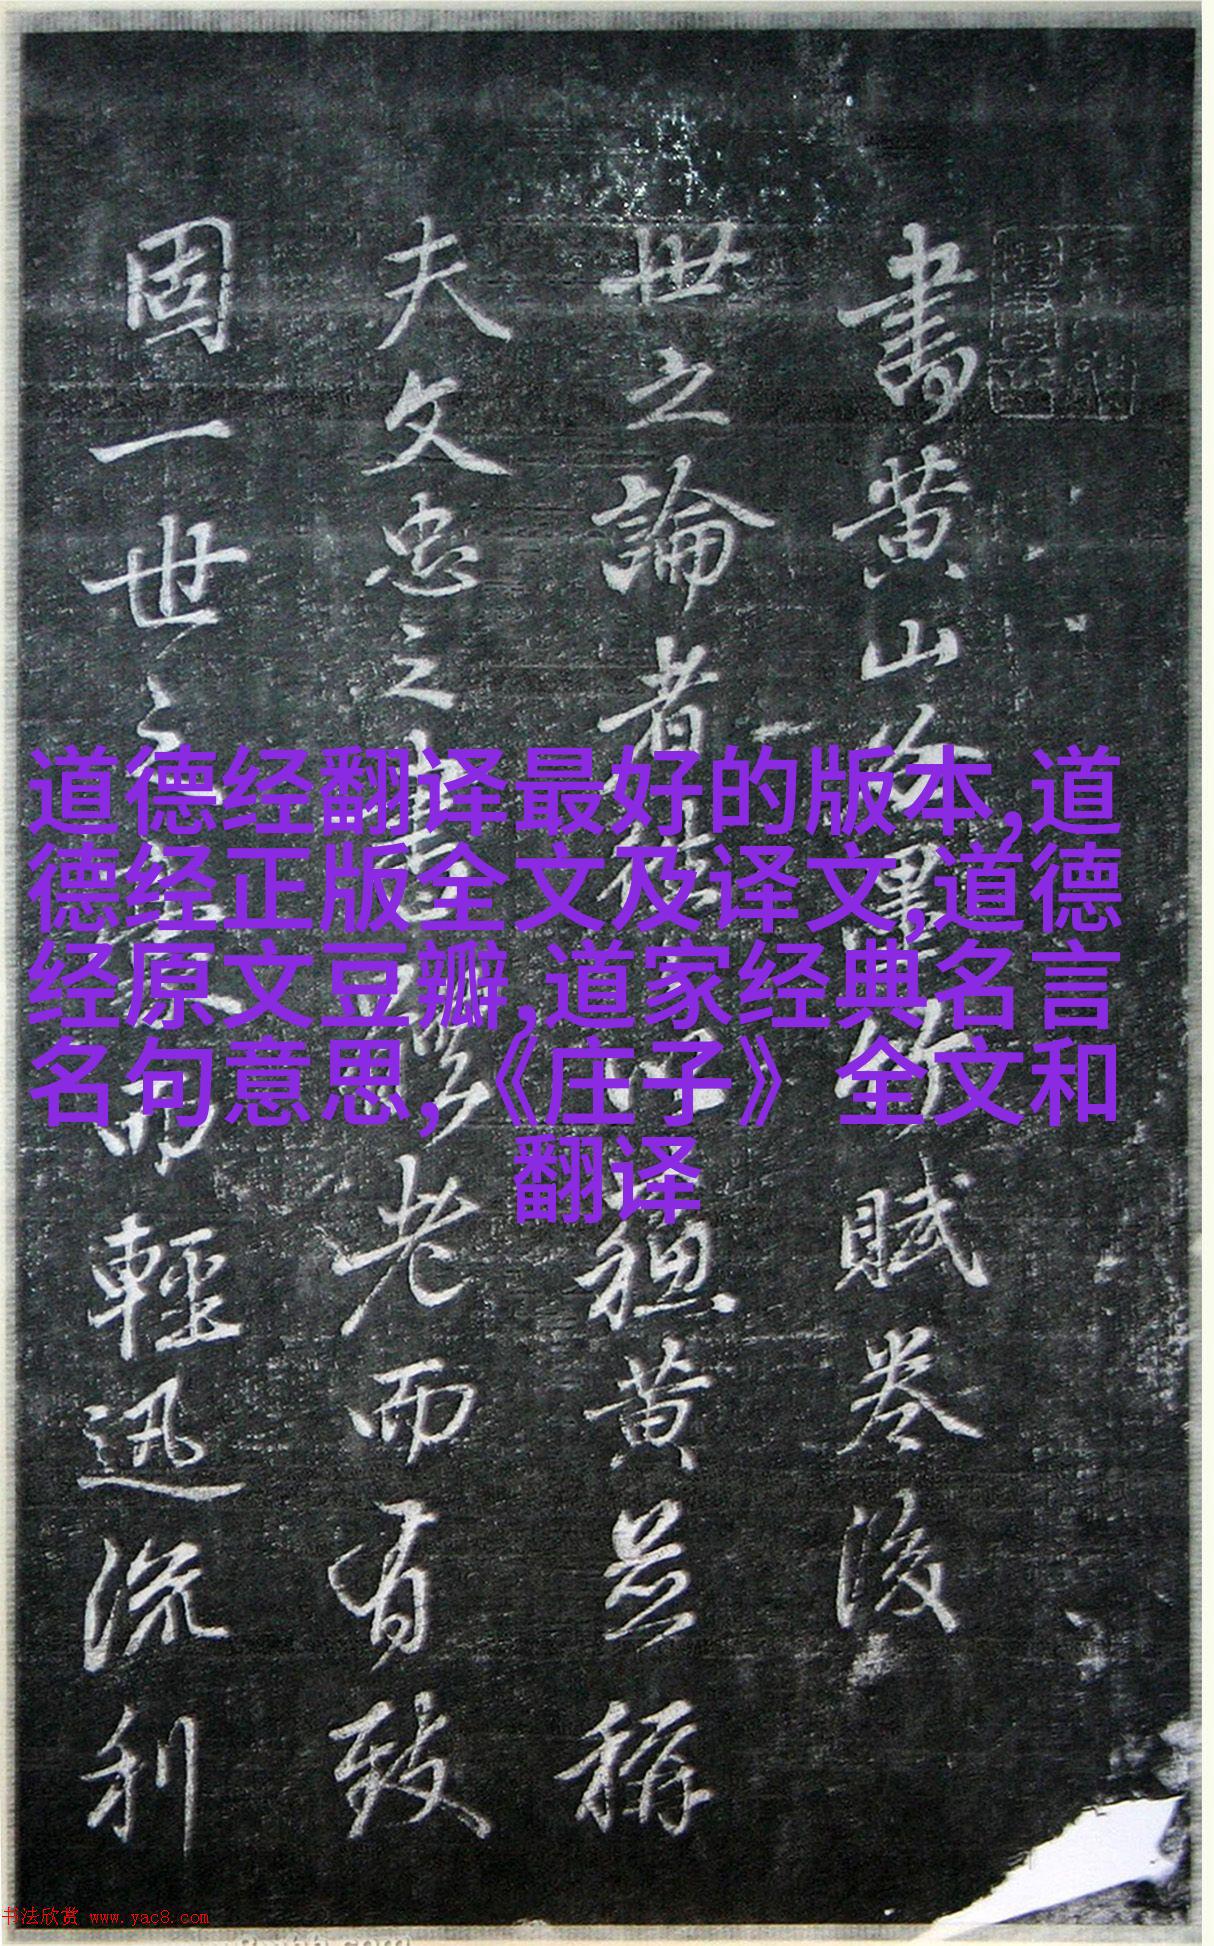 書黄山谷墨竹賦卷後
世之論者
穏黄並稱
夫文忠之書
老而有致
固一世之
而輕迅流利
道德经翻译最好的版本,道
德经正版全文及译文,道德
经原文豆瓣,道家经典名言
名句意思,《庄子》全文和
翻译
书法欣赏 www.yac8.com